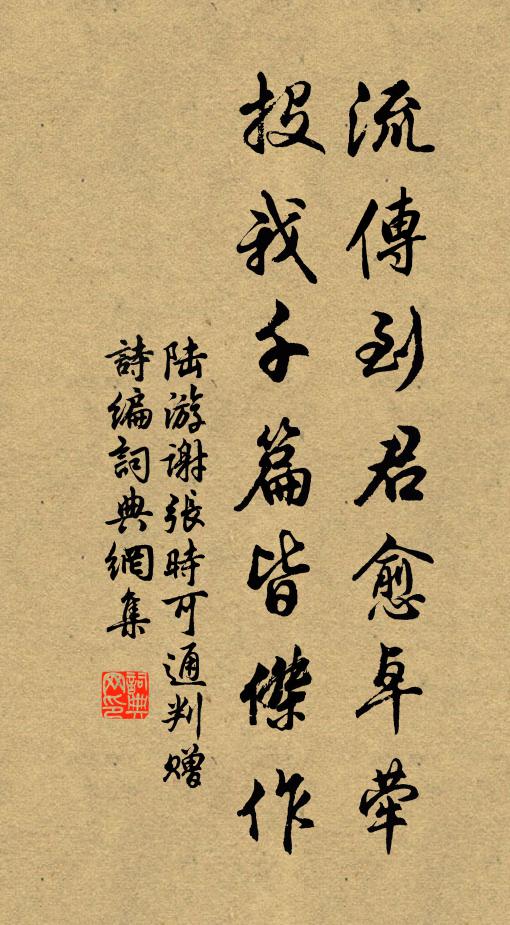 流傳到君愈卓犖
投我千篇皆傑作
陆游谢張時可通判赠
詩編詞典網集
詞典
网印